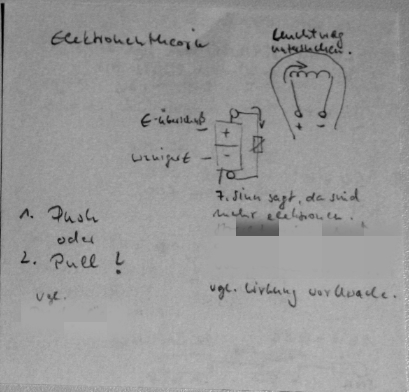 Elektronentheorie
Leuchtung
untersuchen.
E-Überschuß
+
-
wenigerE
+ -
7. Sinn sagt, da sind
mehr elektronen.
1. Push
oder
2. Pull !
vgl.
vgl. Wirkung